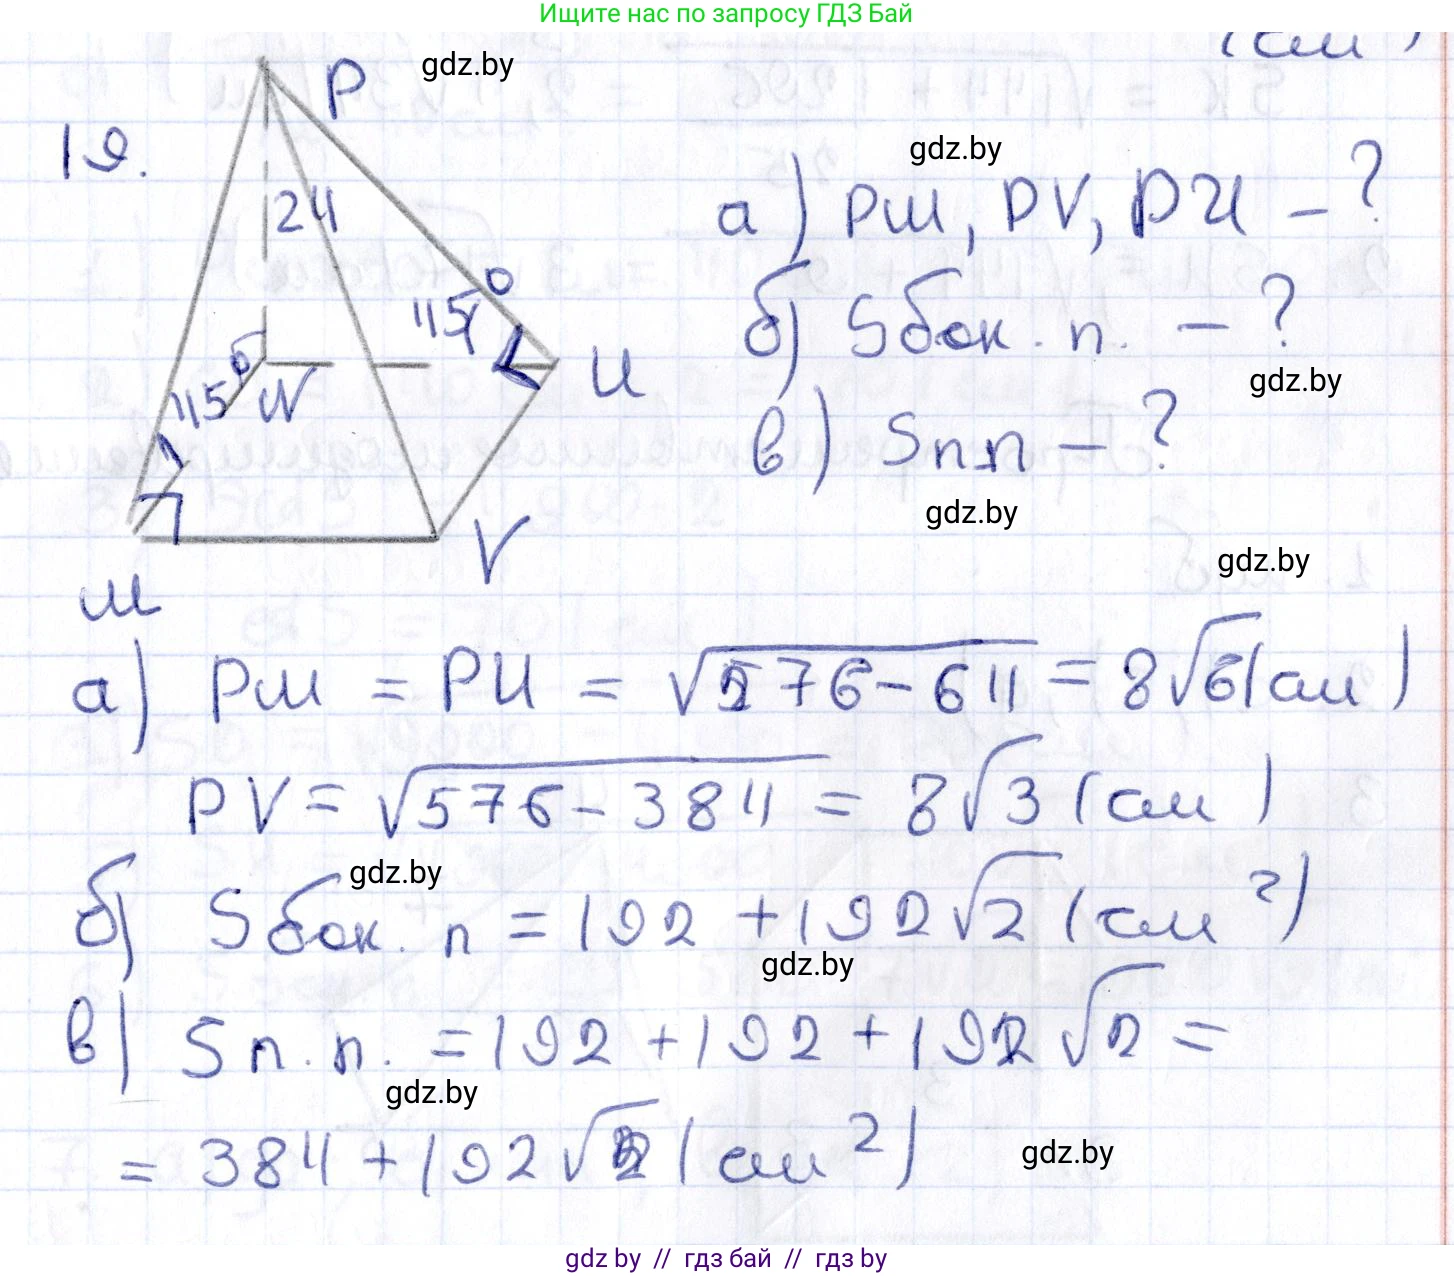 Ищите нас по запросу ГДЗ Бай
(см)
gdz.by
P
19.
24
gdz.by
а) PM, PV, PU - ?
45°
б) Sбок. п. - ?
45° N
U
gdz.by
в) Sп.п - ?
gdz.by
V
gdz.by
M
а) PM = PU = √576-64 = 8√6 (см)
PV = √576-384 = 8√3 (см)
gdz.by
б) Sбок. п = 192 + 192√2 (см²)
gdz.by
в) Sп.п. = 192 + 192 + 192√2 =
gdz.by
= 384 + 192√2 (см²)
gdz.by
gdz by // гдз бай // гдз by